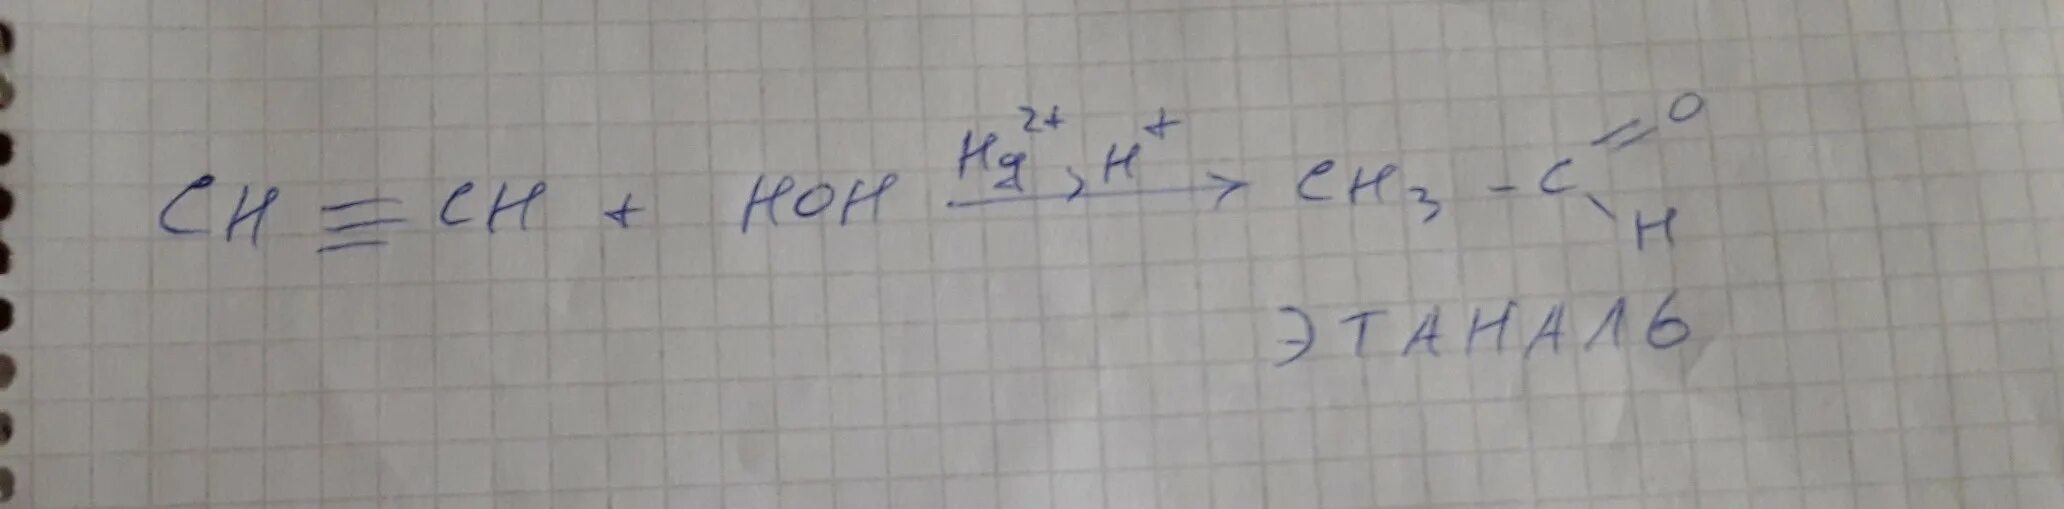 CH ≡ CH + HOH Hg²⁺, H⁺ → CH₃ - C = O
H
ЭТАНАЛЬ